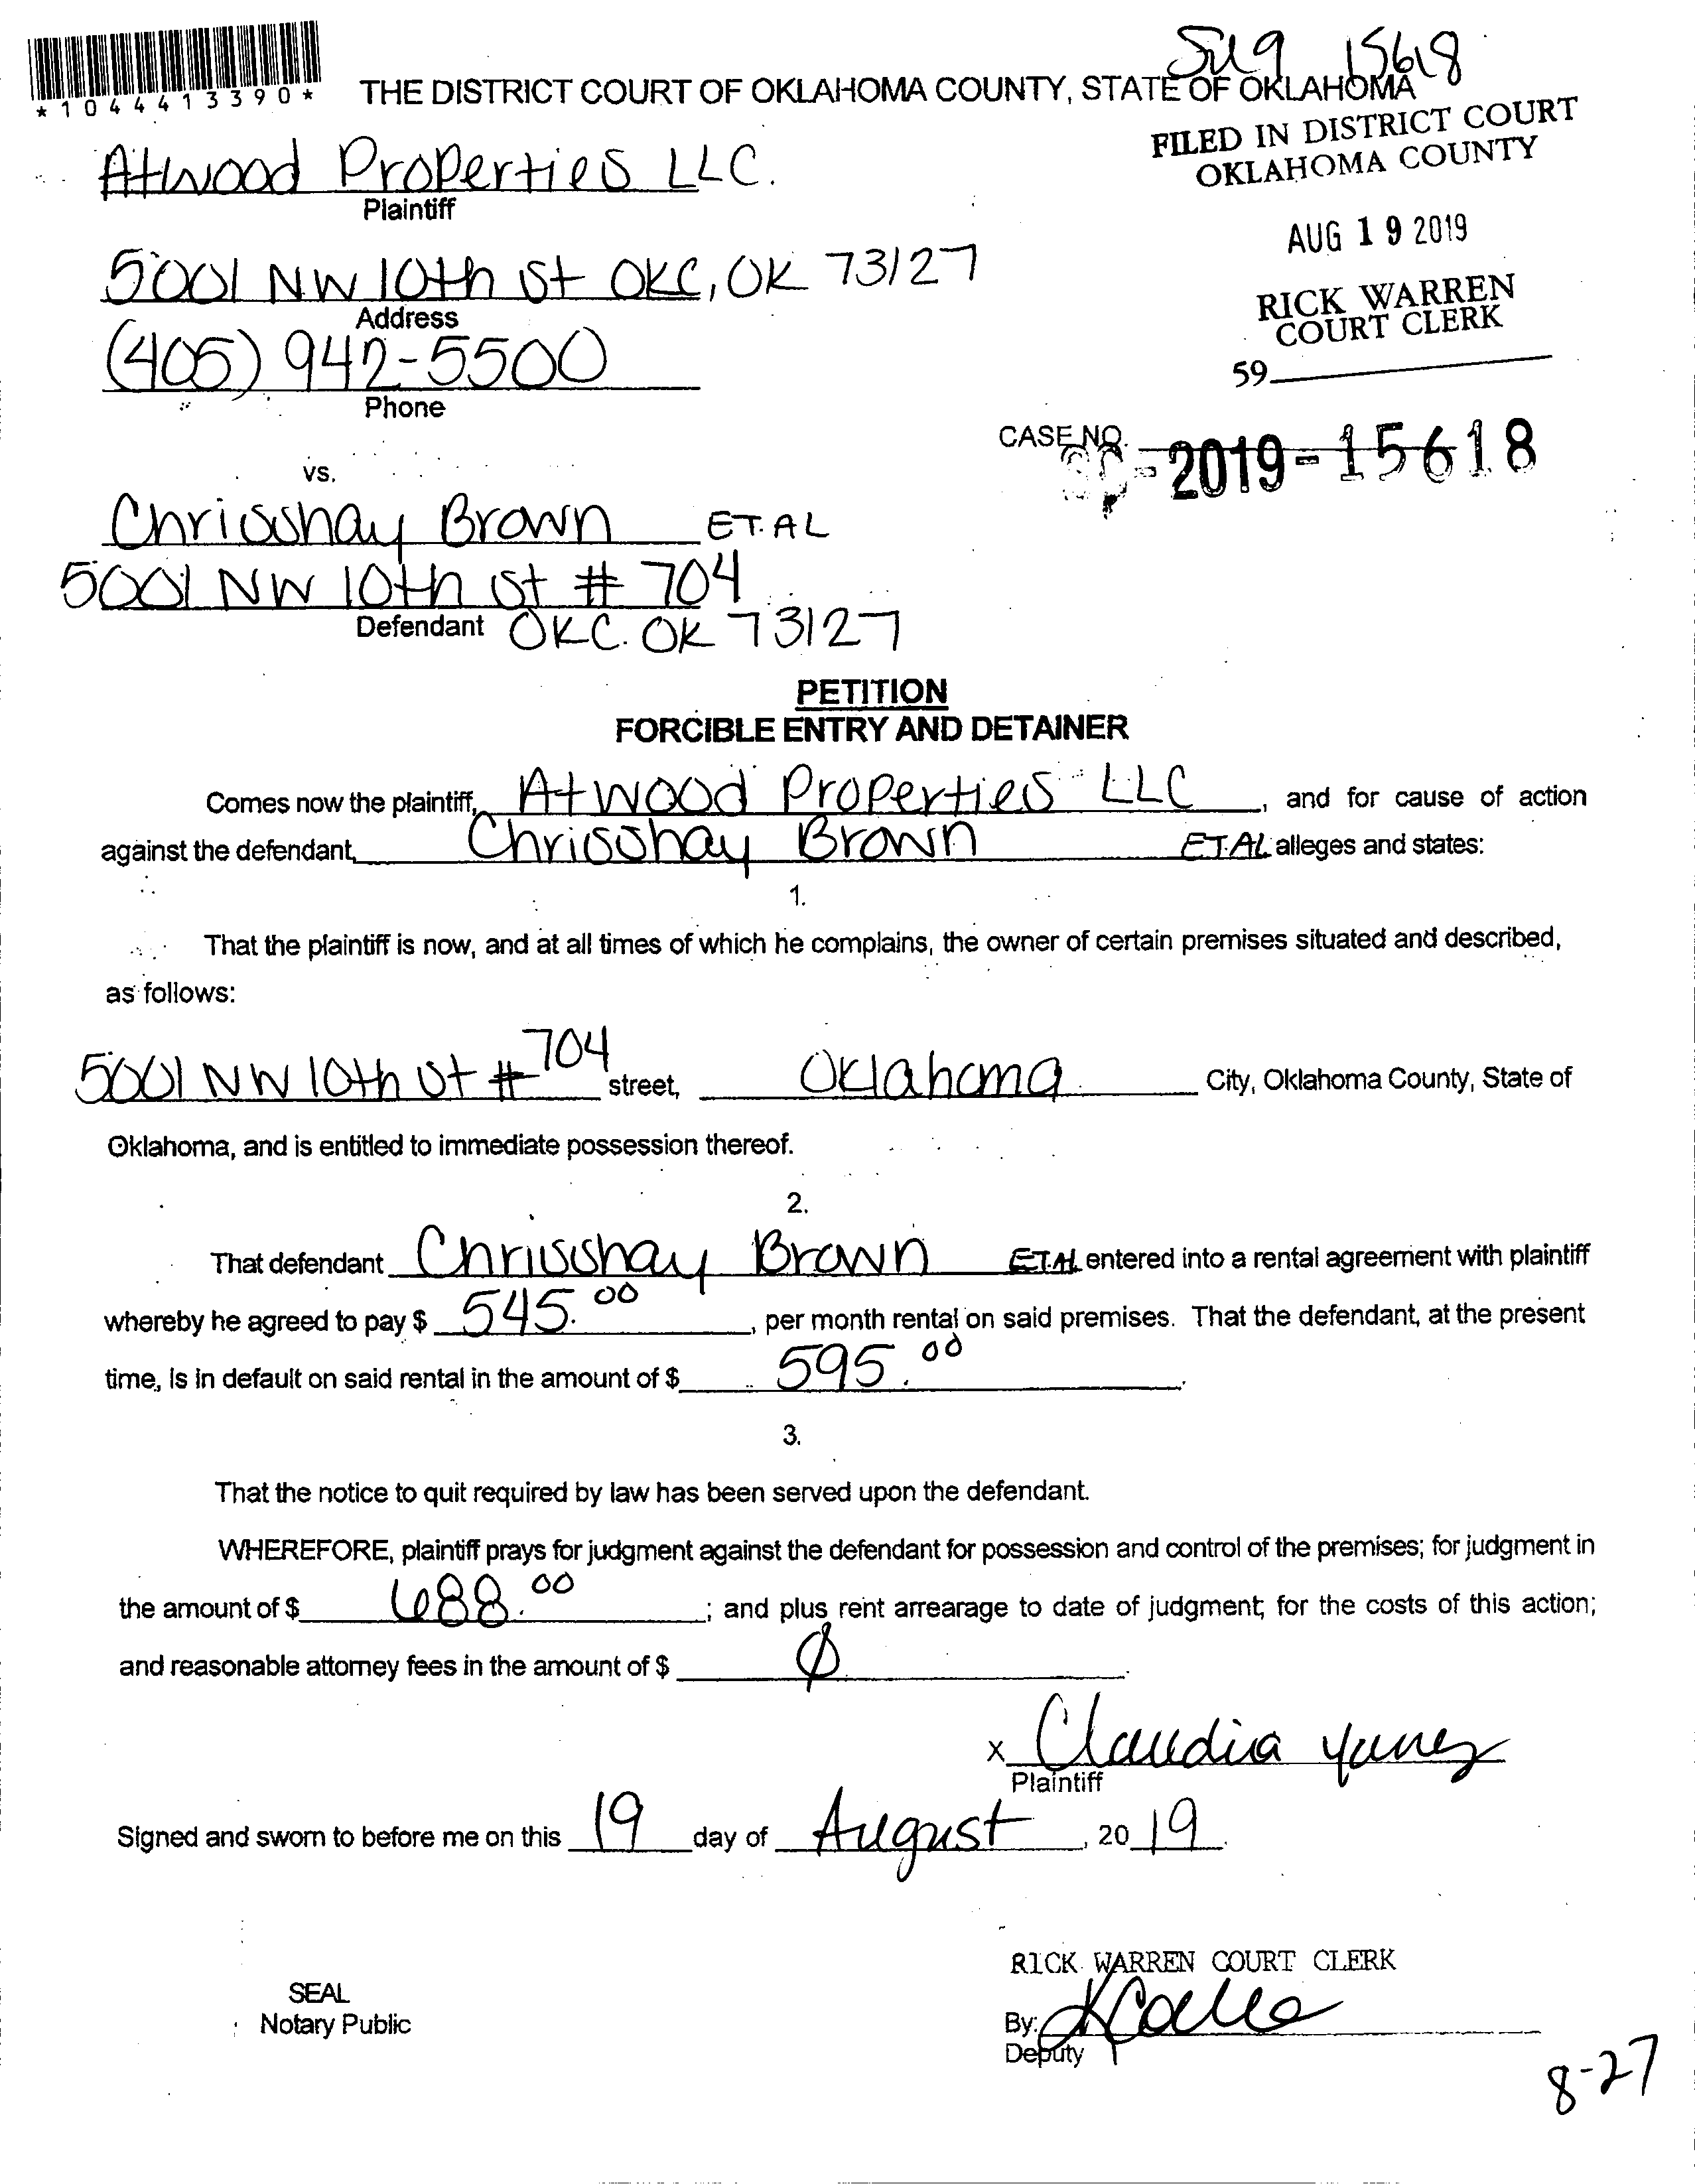 SC19 15618
*1044413390*
THE DISTRICT COURT OF OKLAHOMA COUNTY, STATE OF OKLAHOMA
FILED IN DISTRICT COURT
OKLAHOMA COUNTY
Atwood Properties LLC.
Plaintiff
AUG 19 2019
5001 NW 10th St OKC, OK 73127
Address
RICK WARREN
COURT CLERK
(405) 942-5500
Phone
59
CASE NO. SC-2019-15618
vs.
Chrisshay Brown ET. AL
5001 NW 10th St # 704
Defendant OKC. OK 73127
PETITION
FORCIBLE ENTRY AND DETAINER
Comes now the plaintiff, Atwood Properties LLC, and for cause of action
against the defendant, Chrisshay Brown ET.AL alleges and states:
1.
That the plaintiff is now, and at all times of which he complains, the owner of certain premises situated and described,
as follows:
5001 NW 10th St # 704 street, Oklahoma City, Oklahoma County, State of
Oklahoma, and is entitled to immediate possession thereof.
2.
That defendant Chrisshay Brown ET.AL entered into a rental agreement with plaintiff
whereby he agreed to pay $ 545.00, per month rental on said premises. That the defendant, at the present
time, is in default on said rental in the amount of $ 595.00.
3.
That the notice to quit required by law has been served upon the defendant.
WHEREFORE, plaintiff prays for judgment against the defendant for possession and control of the premises; for judgment in
the amount of $ 688.00; and plus rent arrearage to date of judgment; for the costs of this action;
and reasonable attorney fees in the amount of $ Ø.
x Claudia Yanez
Plaintiff
Signed and sworn to before me on this 19 day of August, 2019.
RICK WARREN COURT CLERK
SEAL
Notary Public
By:
Deputy
8-27